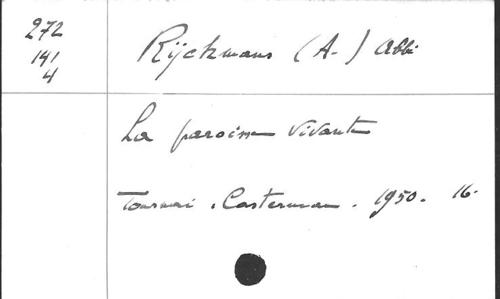 272
141
4
Rijckmans (A.) Abbé
La paroisse vivante
Tournai. Casterman. 1950. 16.